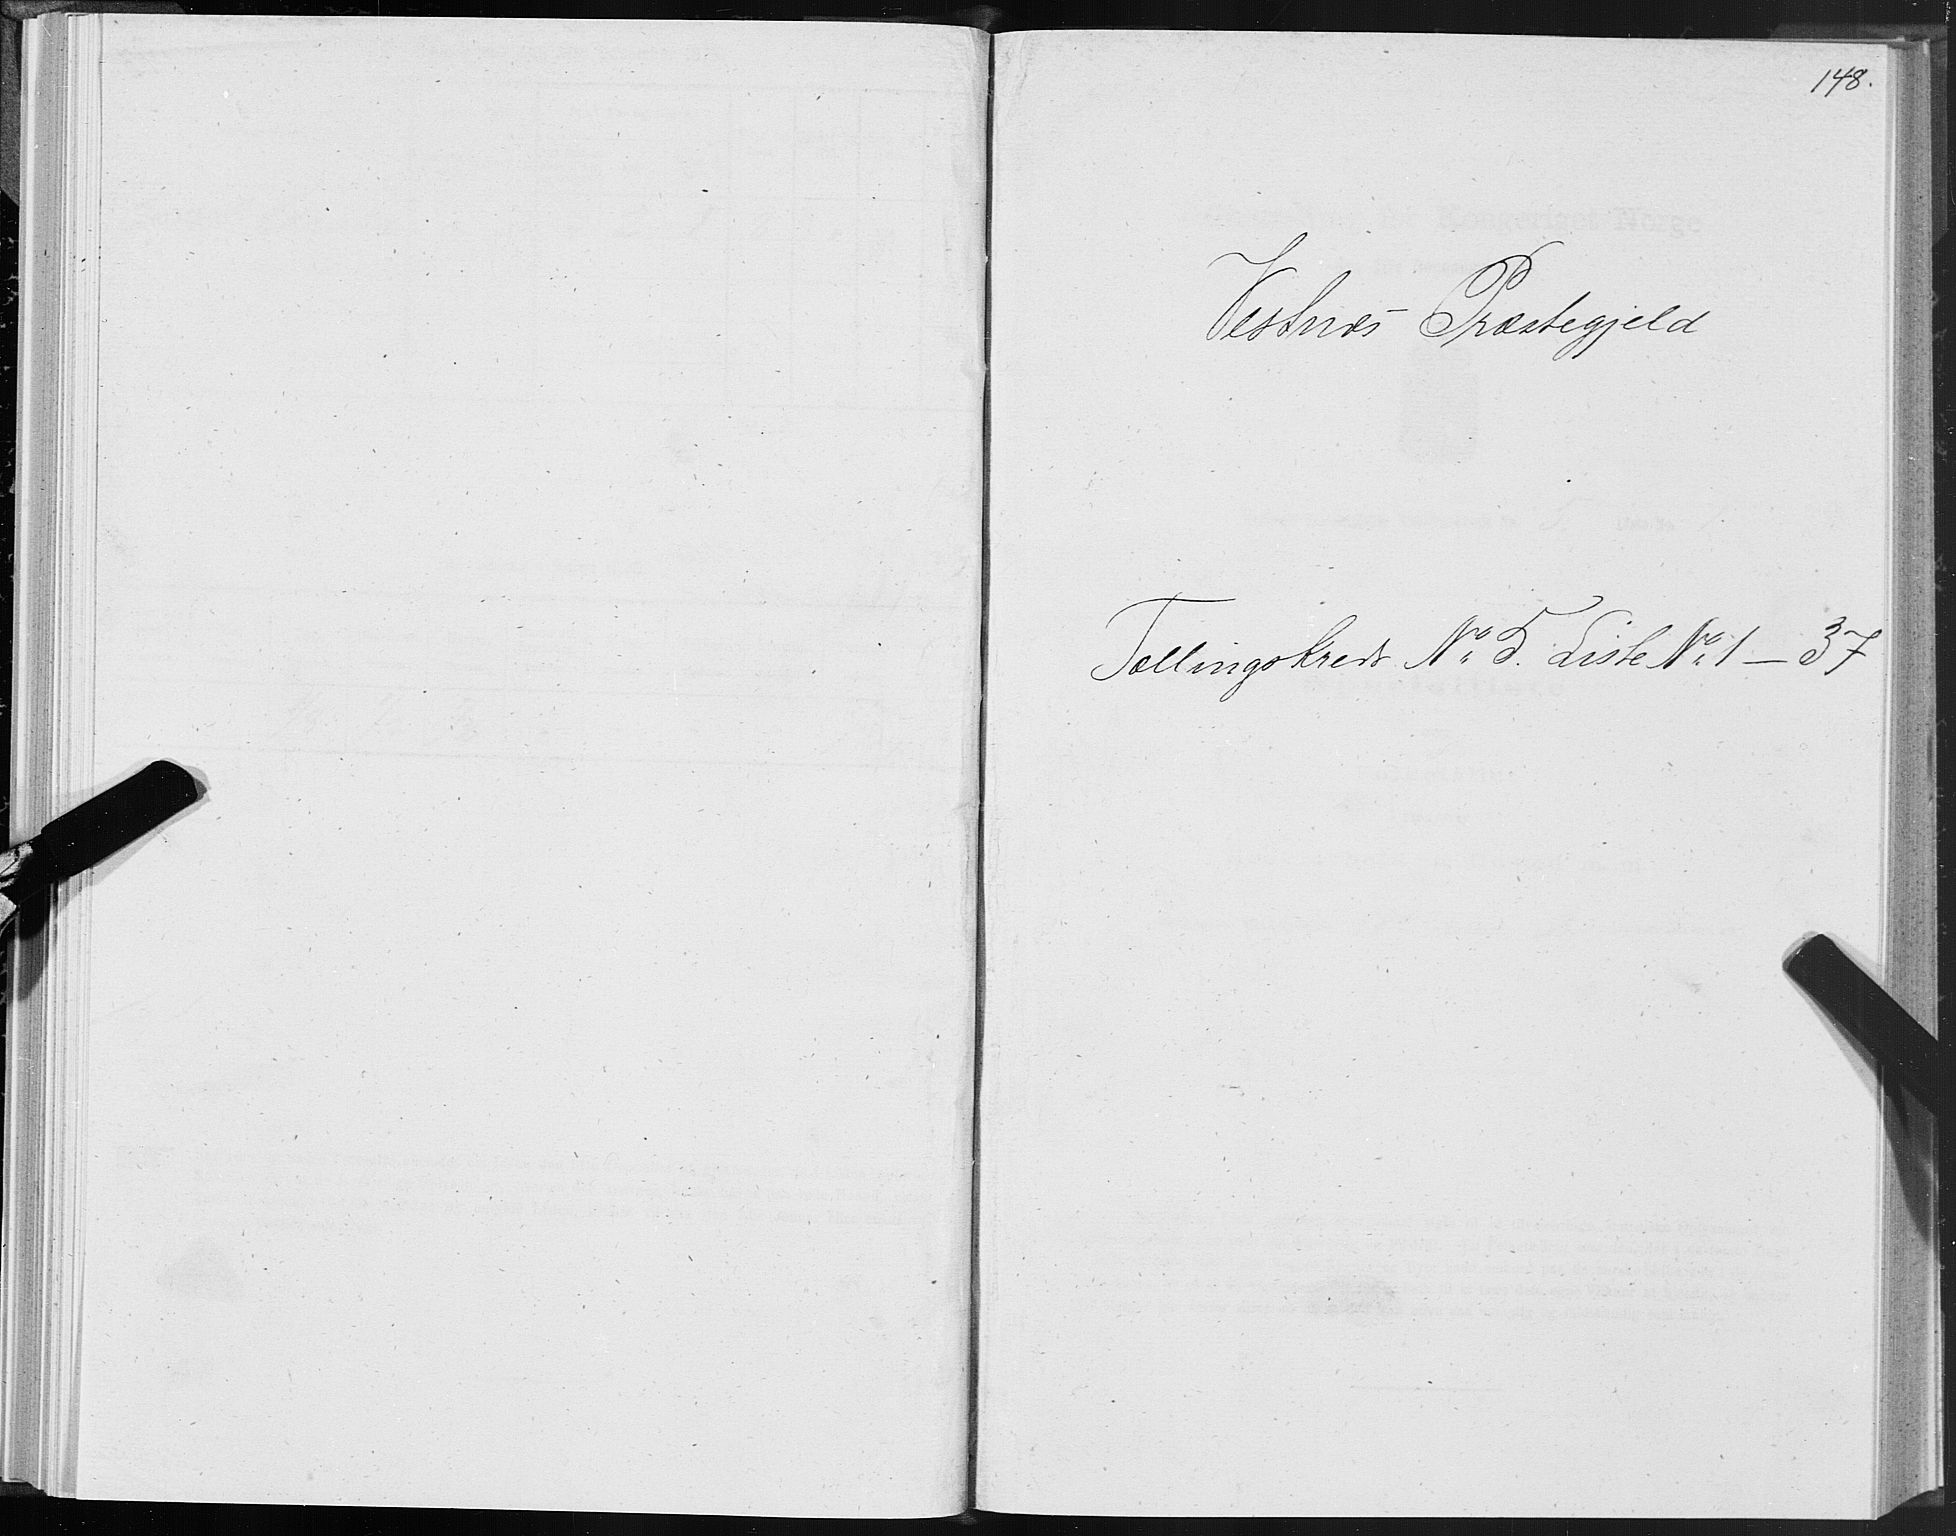 148.
Vestnæs Præstegjeld
Tællingskreds No 5. Liste No 1 — 37